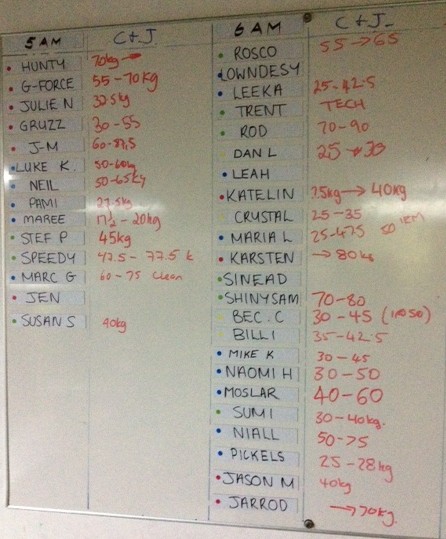 5 AM C + J.
HUNTY 70kg →
G-FORCE 55 - 70kg
JULIE N 32.5kg
GRUZZ 30 - 55
J-M
LUKE K. 50-60kg
NEIL 50-65kg
PAMI 27.5kg
MAREE 17½ - 20kg
STEF P 45kg
SPEEDY 47.5 - 77.5 k
MARC G 60 - 75 Clean
JEN
SUSAN S 40kg
6 AM C + J-
ROSCO 55 → 65
LOWNDESY
LEEKA 25-42.5
TRENT TECH
ROD 70-90
DAN L 25
LEAH
KATELIN 7.5kg → 40kg
CRYSTAL 25-35
MARIA L 25-47.5
KARSTEN → 80kg
SINEAD
SHINYSAM 70-80
BEC. C 30 - 45
BILLI 35-42.5
MIKE K 30-45
NAOMI H 30-50
MOSLAR 40-60
SUMI 30-40kg.
NIALL 50-75
PICKELS 25-28kg
JASON M 40kg
JARROD → 70kg